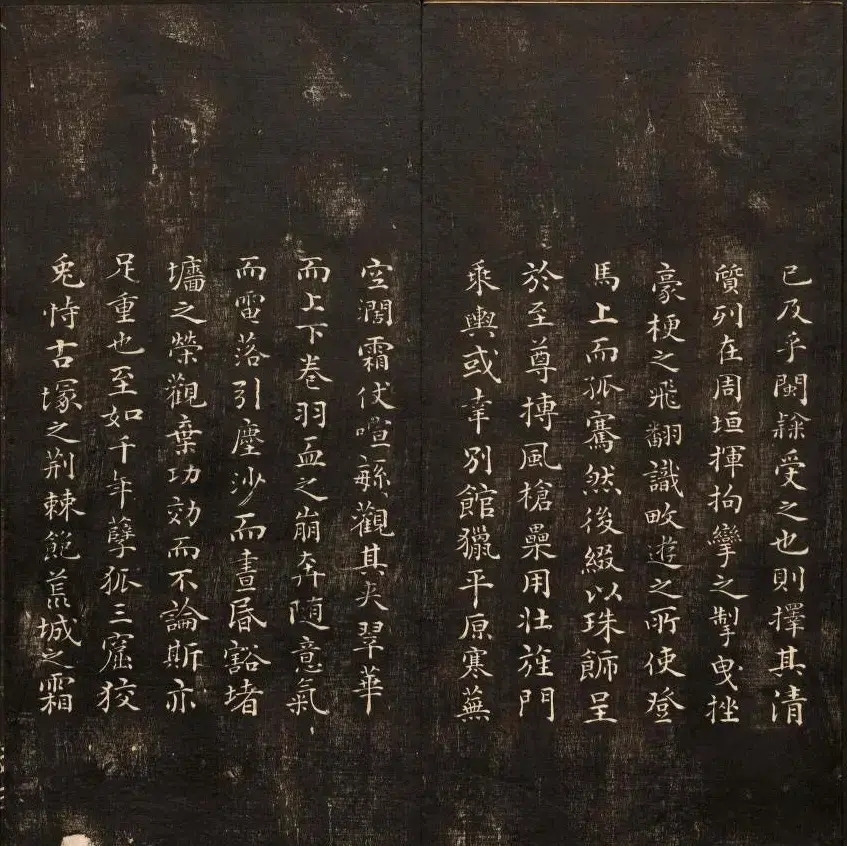 已及乎閩隸受之也則擇其清
質列在周垣揮拘攣之掣曳挫
豪梗之飛翻識畋遊之所使登
馬上而孤騫然後綴以珠飾呈
於至尊摶風槍纍用壯旌門
乘輿或幸別館獵平原寒蕪
空闊霜仗喧繁觀其夾翠華
而上下卷羽血之崩奔随意氣
而電落引塵沙而晝昏豁堵
墻之榮觀棄功効而不論斯亦
足重也至如千年孽狐三窟狡
兎恃古塚之荆棘飽荒城之霜